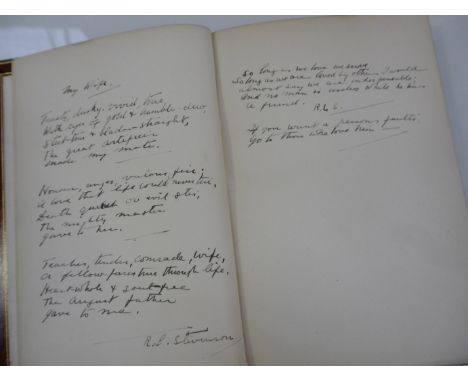 My Wife.
Trusty, dusky, vivid, true,
With eyes of gold & bramble-dew,
Steel-true & blade-straight,
The great artificer
made my mate.
Honour, anger, valour, fire;
A love that life could never tire,
Death quench or evil stir,
The mighty master
gave to her.
Teacher, tender, comrade, wife,
A fellow-farer true through life,
Heart-whole & soul-free
The August father
gave to me.
R.L. Stevenson
So long as we love we serve
So long as we are loved by others I would
almost say we are indispensable;
And no man is useless while he has
a friend. R.L.S.
If you want a persons faults,
go to those who love him